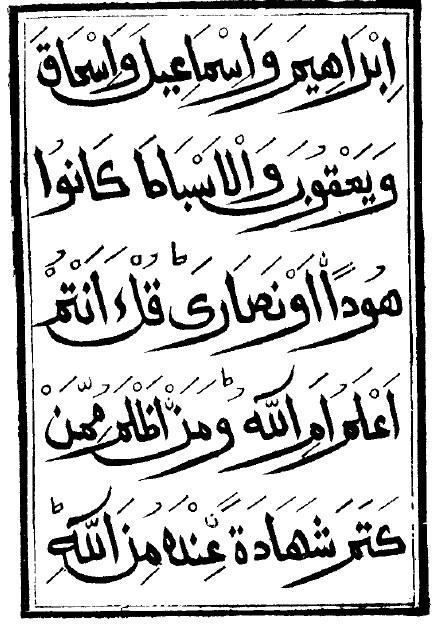 إِبْرَاهِيمَ وَإِسْمَاعِيلَ وَإِسْحَاقَ
وَيَعْقُوبَ وَالْأَسْبَاطَ كَانُوا
هُودًا أَوْ نَصَارَى قُلْ ءَأَنْتُمْ
أَعْلَمُ أَمِ اللَّهُ وَمَنْ أَظْلَمُ مِمَّنْ
كَتَمَ شَهَادَةً عِنْدَهُ مِنَ اللَّهِ